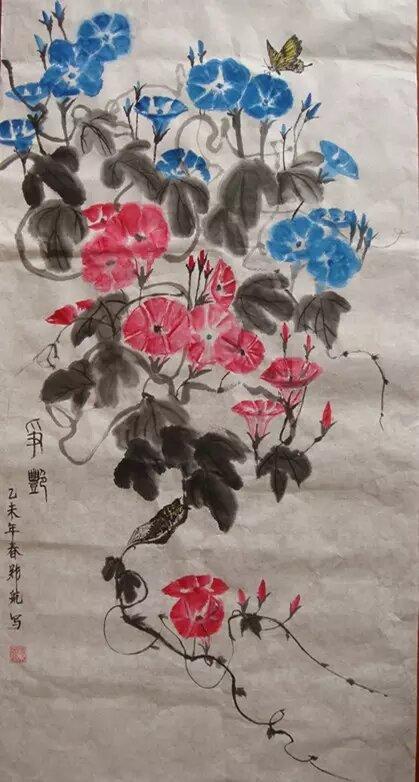 争艳
乙未年春郑航写